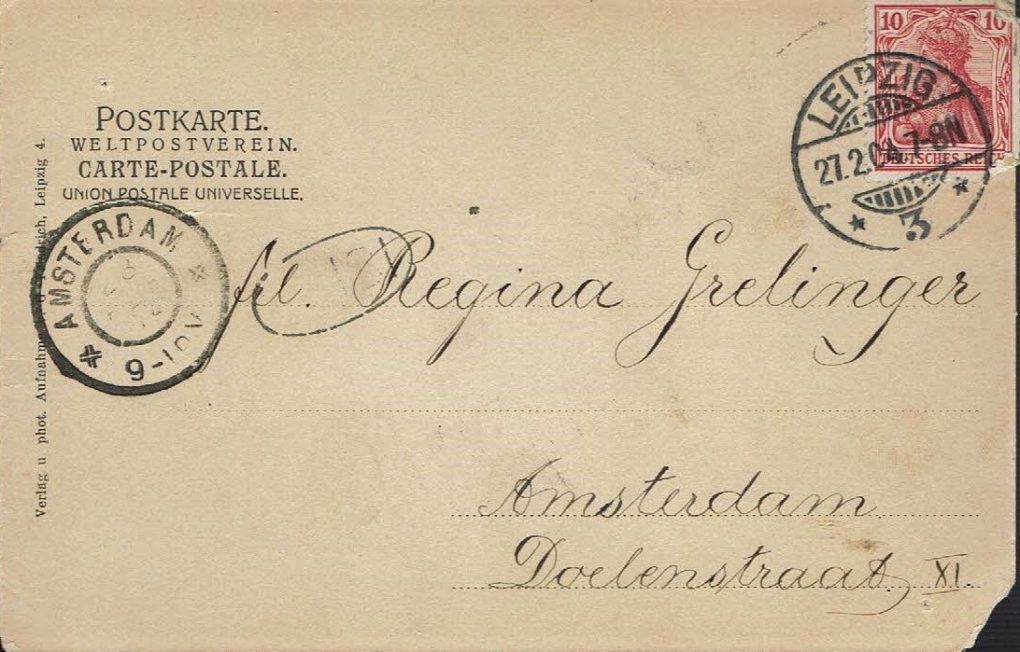 10 10
LEIPZIG
27.2.04.7-8N
DEUTSCHES REICH
* 3 *
POSTKARTE.
WELTPOSTVEREIN.
CARTE-POSTALE.
UNION POSTALE UNIVERSELLE.
AMSTERDAM
9-10V
Verlag u phot. Aufnahme Leipzig 4.
Regina Grelinger
Amsterdam
Doelenstraat XI.